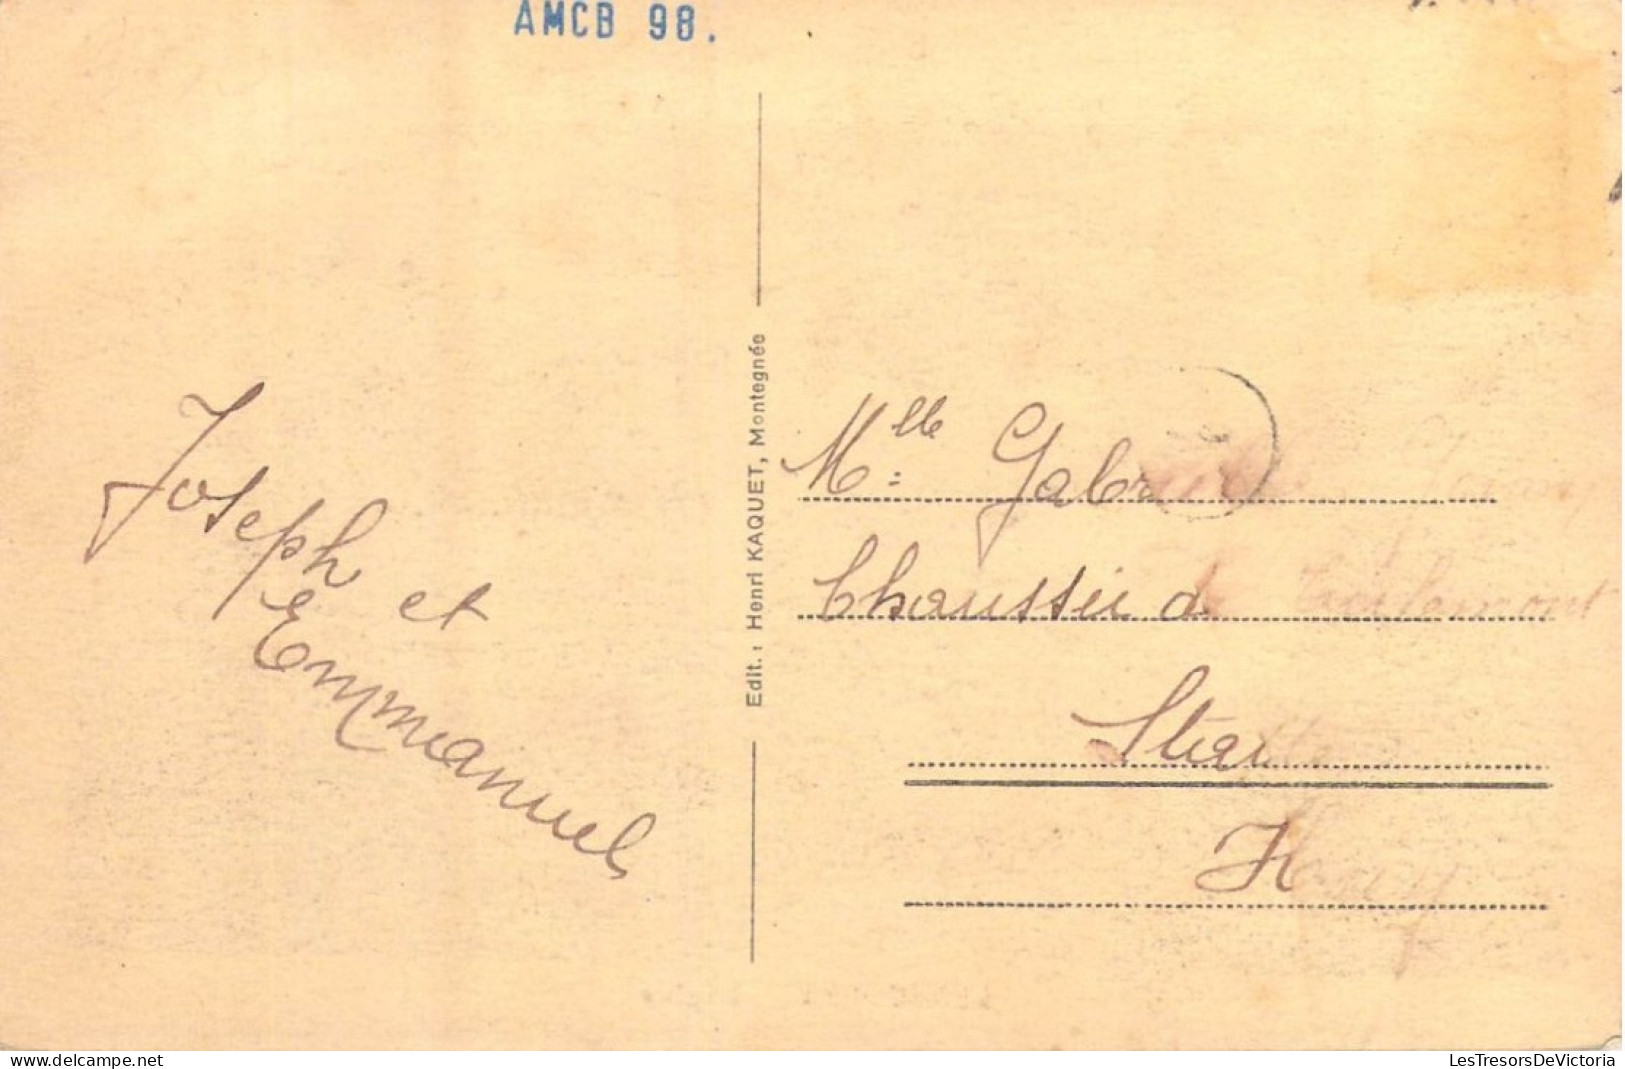 AMCB 98.
Joseph et
Emmanuel
Edit.: Henri KAQUET, Montegnée
Mlle: Gabrielle
Chaussée de Tirlemont
Statte
Huy
www.delcampe.net
LesTresorsDeVictoria